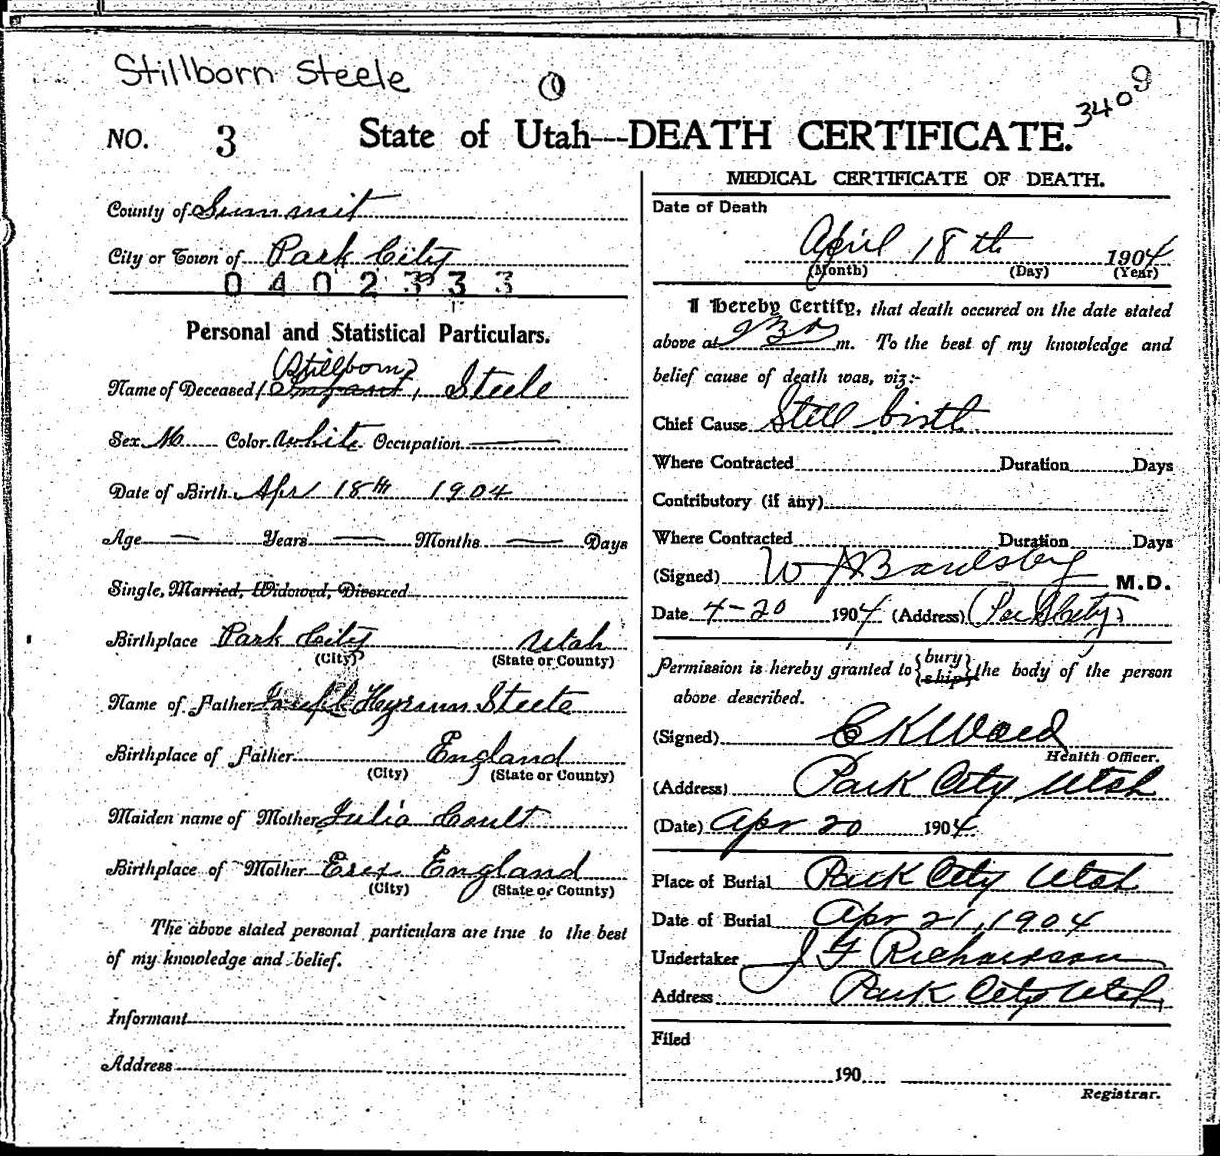 Stillborn Steele
3409
NO. 3 State of Utah---DEATH CERTIFICATE.
County of Summit
City or Town of Park City
0402333
Personal and Statistical Particulars.
(Stillborn)
Name of Deceased Infant, Steele
Sex M Color White Occupation
Date of Birth Apr 18th 1904
Age — Years — Months — Days
Single, Married, Widowed, Divorced
Birthplace Park City Utah
(City) (State or County)
Name of Father Joseph Hyrum Steele
Birthplace of Father England
(City) (State or County)
Maiden name of Mother Julia Coult
Birthplace of Mother Esex England
(City) (State or County)
The above stated personal particulars are true to the best
of my knowledge and belief.
Informant
Address
MEDICAL CERTIFICATE OF DEATH.
Date of Death
April 18th 1904
(Month) (Day) (Year)
I hereby Certify, that death occured on the date stated
above at m. To the best of my knowledge and
belief cause of death was, viz:-
Chief Cause Still birth
Where Contracted Duration Days
Contributory (if any)
Where Contracted Duration Days
(Signed) W J Bardsley M.D.
Date 4-20 1904 (Address) Park City
Permission is hereby granted to {bury ship} the body of the person
above described.
(Signed) E K Ward
Health Officer.
(Address) Park City Utah
(Date) Apr 20 1904
Place of Burial Park City Utah
Date of Burial Apr 21, 1904
Undertaker J F Richardson
Address Park City Utah
Filed
190
Registrar.